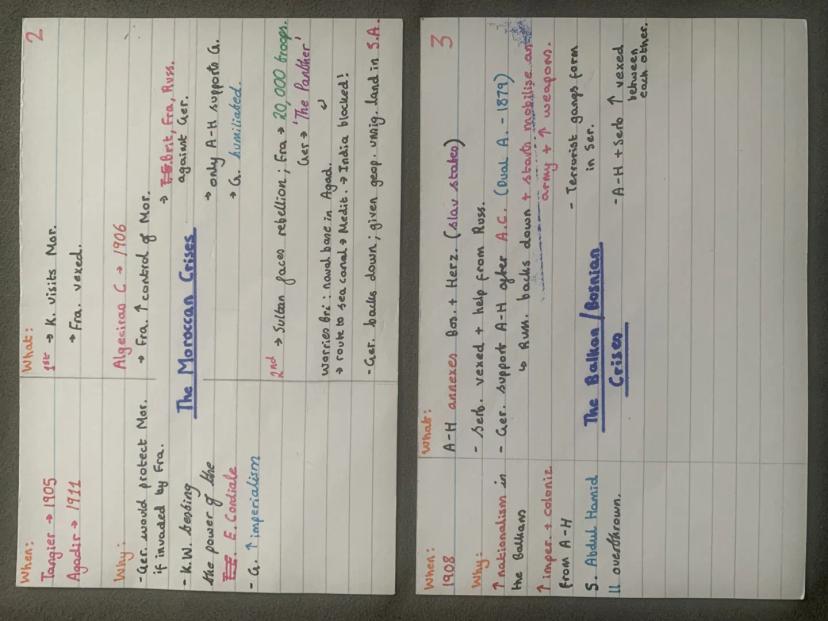 2
When:
Tangier → 1905
Agadir → 1911
Why:
- Ger. would protect Mor.
if invaded by Fra.
- K.W. testing
the power of the
E. Cordiale
- G. ↑ imperialism
What:
1st → K. visits Mor.
→ Fra. vexed.
Algeciras C → 1906
→ Fra. ↑ control of Mor.
→ Brit, Fra, Russ.
against Ger.
The Moroccan Crises
→ only A-H supports G.
→ G. humiliated.
2nd → Sultan faces rebellion; Fra → 20,000 troops.
Ger → 'The Panther'
Worries Bri: naval base in Agad.
→ route to sea canal → Medit. → India blocked!
- Ger. backs down; given geop. unsig. land in S.A.
3
When:
1908
Why:
↑ nationalism in
the Balkans
↑ imper. + coloniz.
from A-H
S. Abdul Hamid
II overthrown.
What:
A-H annexes Bos. + Herz. (slav states)
- Serb. vexed + help from Russ.
- Ger. support A-H after A.C. (Dual A. - 1879)
↳ Russ. backs down + starts mobilise an
army + ↑ weapons.
The Balkan/Bosnian
Crises
- Terrorist gangs form
in Ser.
- A-H + Serb ↑ vexed
between
each other.